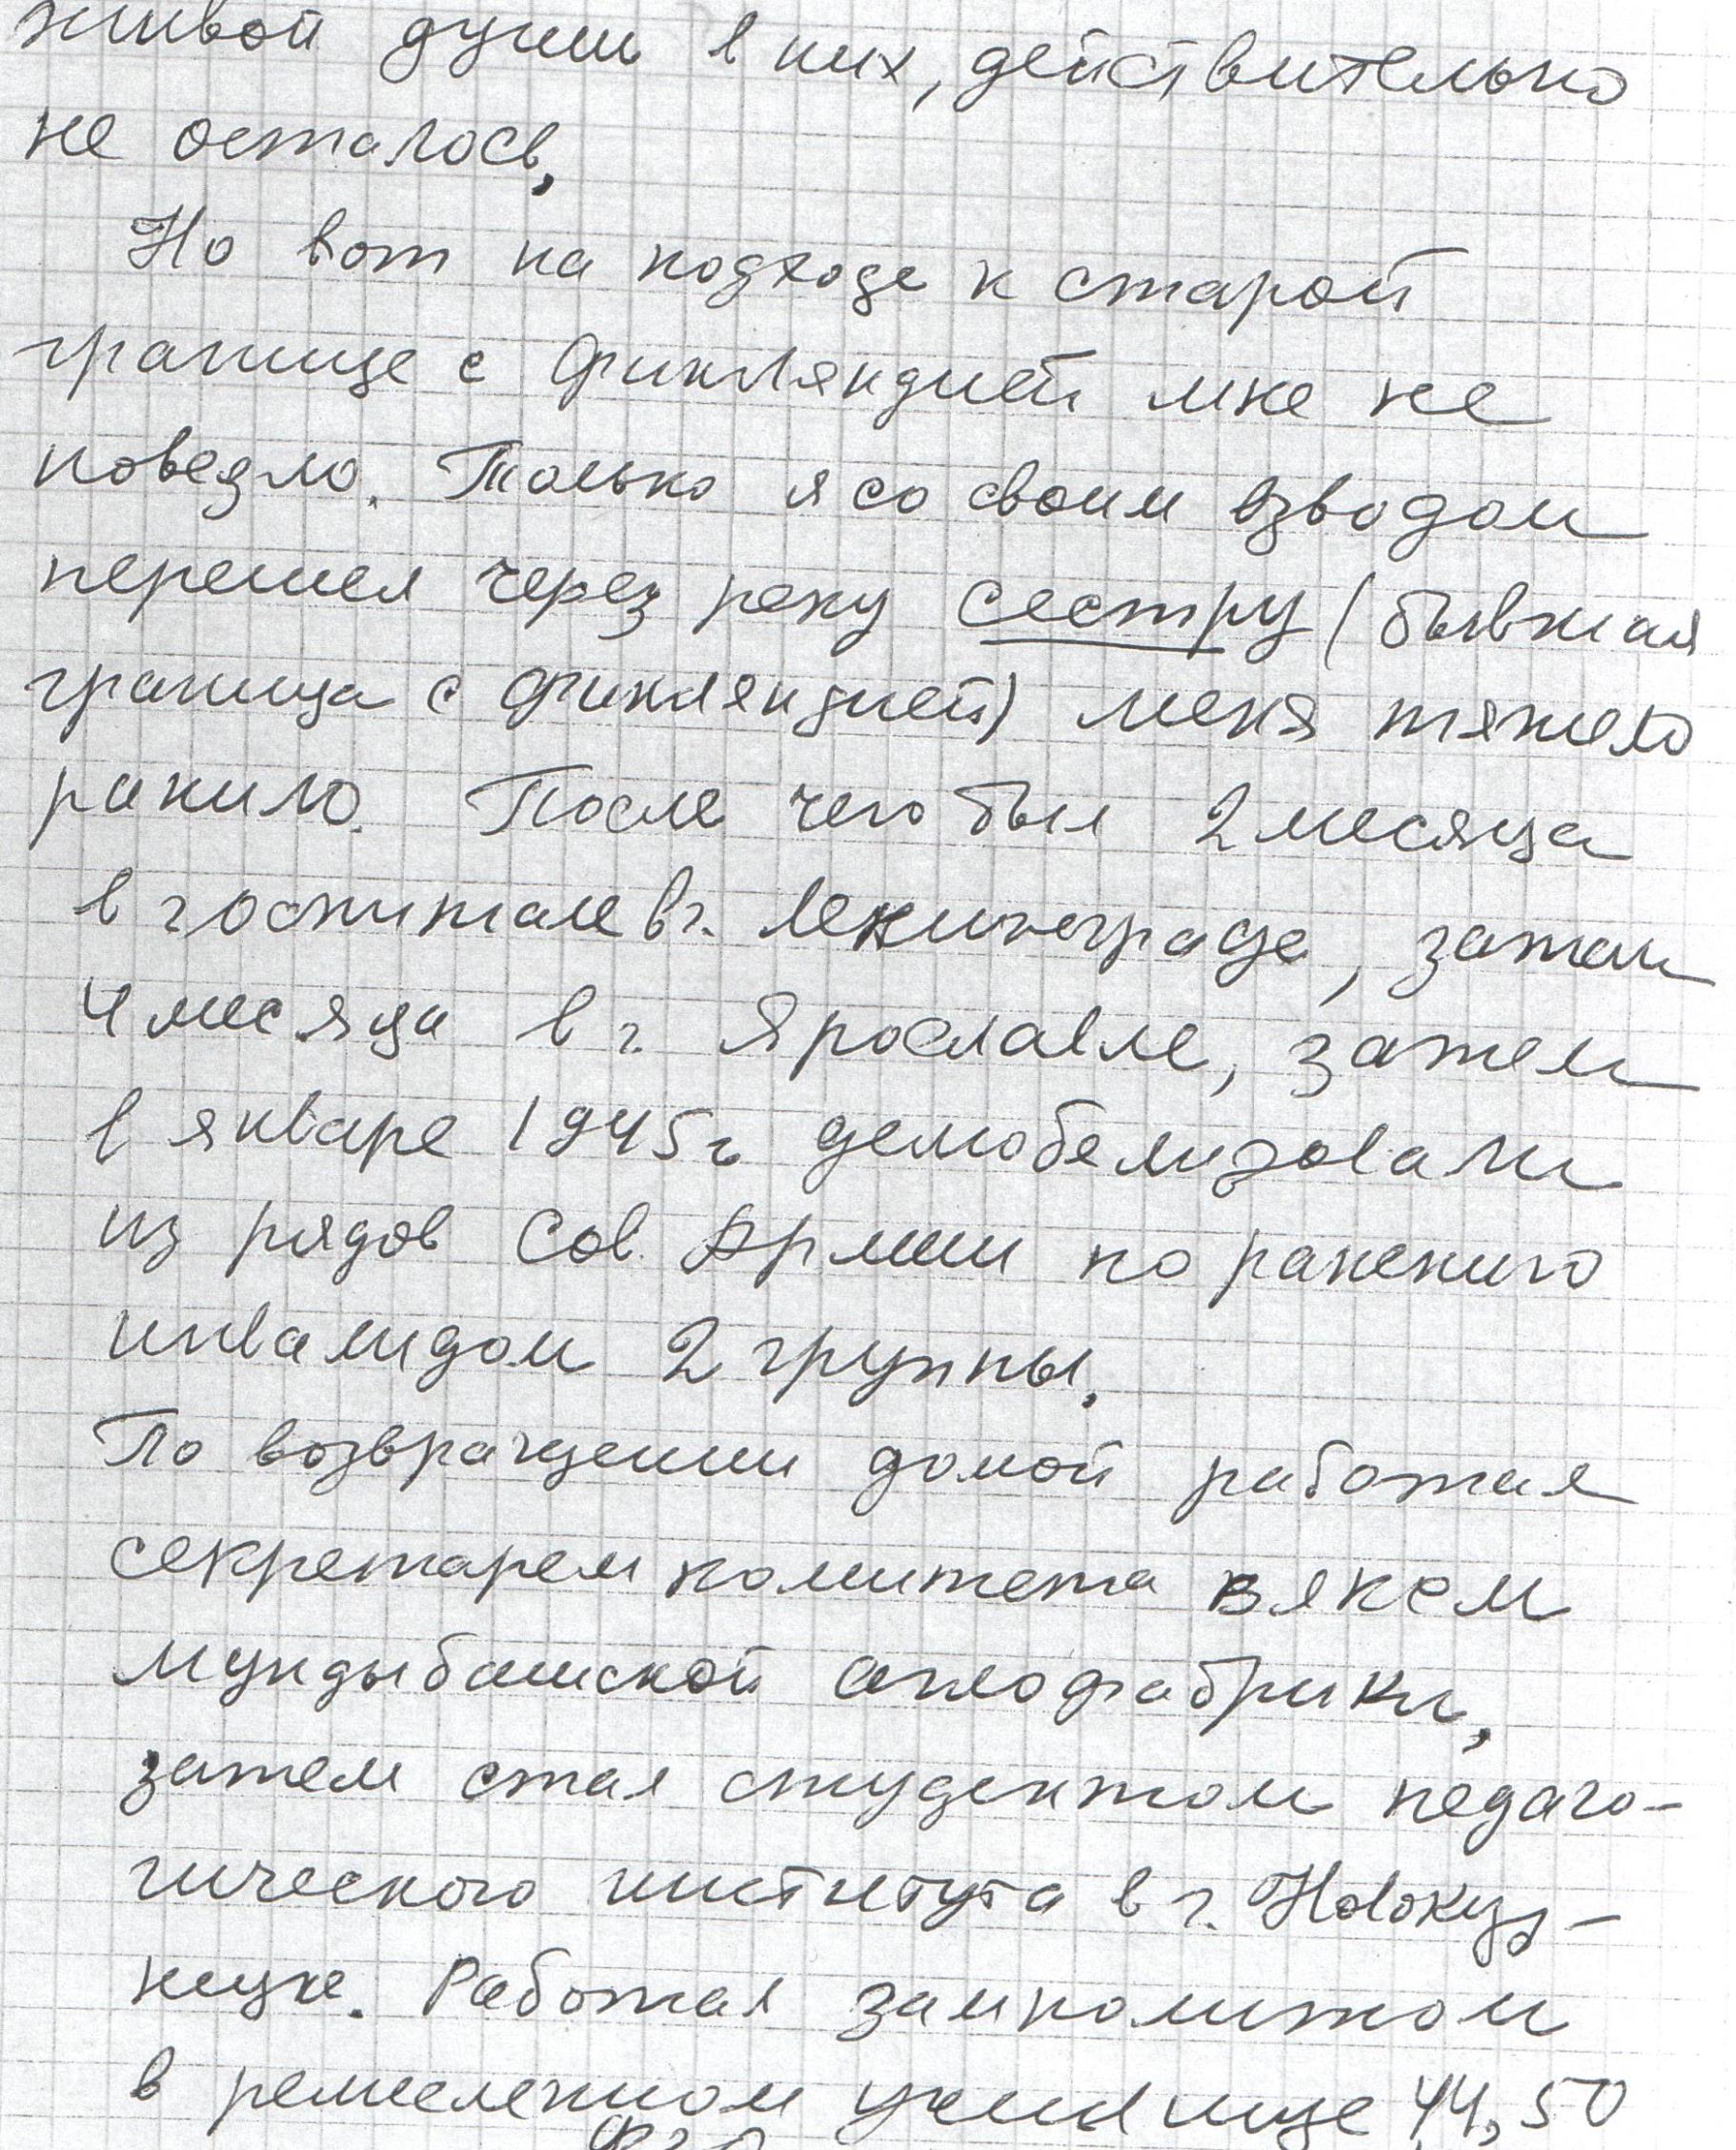 живой души в них, действительно
не осталось,
Но вот на подходе к старой
границе с Финляндией мне не
повезло. Только я со своим взводом
перешел через реку сестру (бывшая
граница с Финляндией) меня тяжело
ранило. После чего был 2 месяца
в госпитале в г. Ленинграде, затем
4 месяца в г. Ярославле, затем
в январе 1945 г. демобелизовали
из рядов Сов. Армии по ранению
инвалидом 2 группы.
По возвращении домой работал
секретарем комитета
мундыбашской аглофабрики,
затем стал студентом педаго-
гического института в г. Новокуз-
нецке. Работал замполитом
в ремесленном училище 44, 50